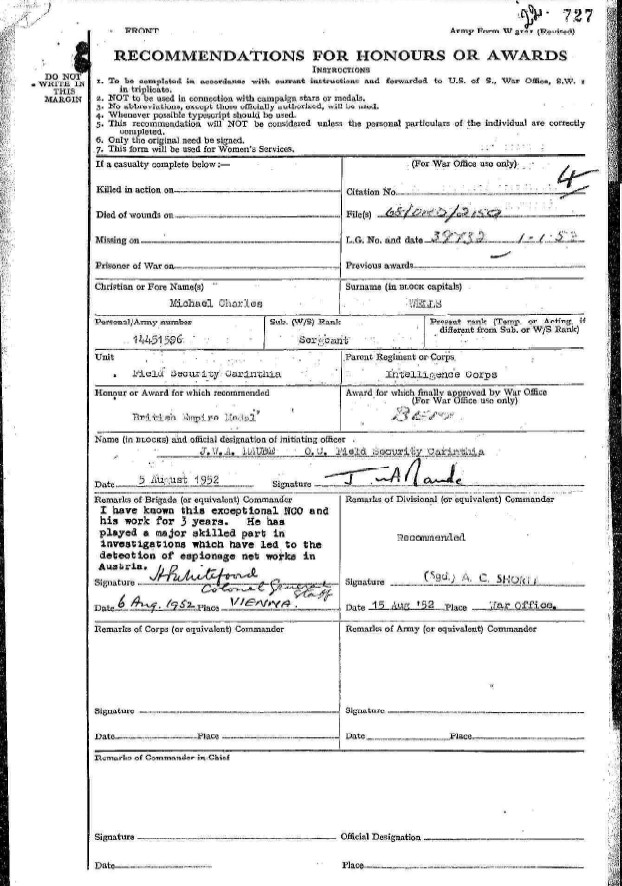 727
FRONT
Army Form W
(Revised)
RECOMMENDATIONS FOR HONOURS OR AWARDS
INSTRUCTIONS
DO NOT
WRITE IN
THIS
MARGIN
1. To be completed in accordance with current instructions and forwarded to U.S. of S., War Office, S.W. 1
in triplicate.
2. NOT to be used in connection with campaign stars or medals.
3. No abbreviations, except those officially authorised, will be used.
4. Whenever possible typescript should be used.
5. This recommendation will NOT be considered unless the personal particulars of the individual are correctly
completed.
6. Only the original need be signed.
7. This form will be used for Women's Services.
If a casualty complete below :—
(For War Office use only)
Killed in action on
Citation No. 4
Died of wounds on
File(s) 68/
Missing on
L.G. No. and date 39732 1-1-53
Prisoner of War on
Previous awards
Christian or Fore Name(s)
Surname (in BLOCK capitals)
Michael Charles
WELLS
Personal/Army number
Sub. (W/S) Rank
Present rank (Temp. or Acting, if
different from Sub. or W/S Rank)
14451596
Sergeant
Unit
Parent Regiment or Corps
Field Security Carinthia
Intelligence Corps
Honour or Award for which recommended
Award for which finally approved by War Office
(For War Office use only)
British Empire Medal
BEM
Name (in BLOCKS) and official designation of initiating officer
J.W.A. O.C. Field Security Carinthia
Date 5 August 1952 Signature
Remarks of Brigade (or equivalent) Commander
Remarks of Divisional (or equivalent) Commander
I have known this exceptional NCO and
his work for 3 years. He has
played a major skilled part in
investigations which have led to the
detection of espionage net works in
Austria.
Recommended
Signature
Colonel General
Staff
Signature (Sgd.) A. C. SHORT
Date 6 Aug. 1952 Place VIENNA.
Date 15 Aug '52 Place War Office.
Remarks of Corps (or equivalent) Commander
Remarks of Army (or equivalent) Commander
Signature
Signature
Date Place
Date Place
Remarks of Commander in Chief
Signature
Official Designation
Date
Place